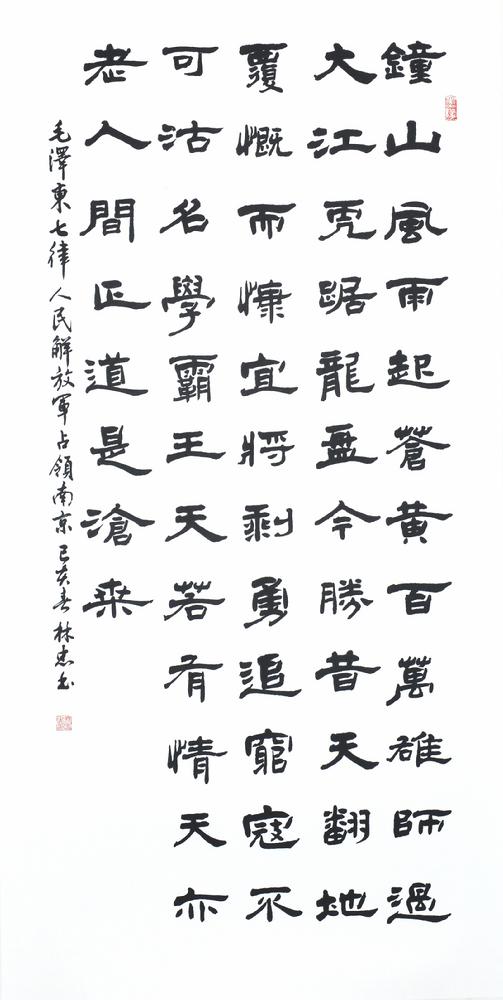 鐘山風雨起蒼黄百萬雄師過
大江虎踞龍盤今勝昔天翻地
覆慨而慷宜將剩勇追窮寇不
可沽名學霸王天若有情天亦
老人間正道是滄桑
毛澤東七律 人民解放軍占領南京 己亥春林忠书